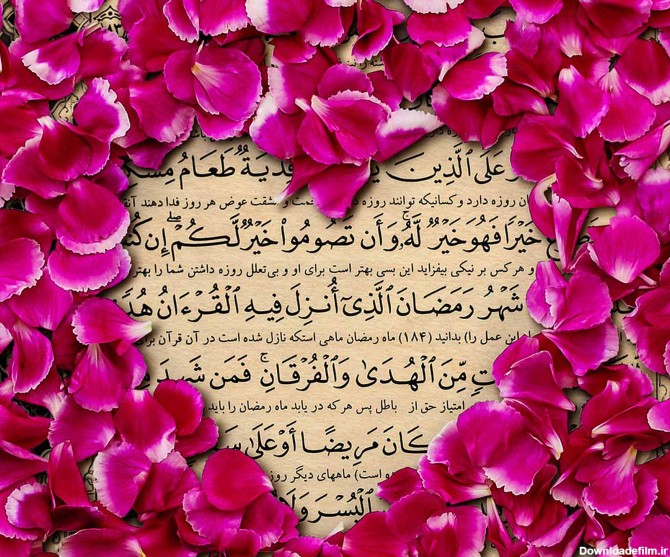 عَلَى ٱلَّذِينَ فِدْيَةٌ طَعَامُ
روزه دارد و کسانیکه توانند روزه و مشقت عوض هر روز فدا دهند
خَيْرًا فَهُوَ خَيْرٌ لَّهُۥۚ وَأَن تَصُومُوا۟ خَيْرٌ لَّكُمْۖ إِن
و هر کس بر نیکی بیفزاید این بسی بهتر است برای او و بی‌تعلل روزه داشتن شما را بهتر
شَهْرُ رَمَضَانَ ٱلَّذِىٓ أُنزِلَ فِيهِ ٱلْقُرْءَانُ هُدً
این عمل را) بدانید (۱۸۴) ماه رمضان ماهی استکه نازل شده است در آن قرآن
مِّنَ ٱلْهُدَىٰ وَٱلْفُرْقَانِۚ فَمَن شَهِدَ
امتیاز حق از باطل پس هر که در یابد ماه رمضان را باید
كَانَ مَرِيضًا أَوْ عَلَىٰ
است) ماههای دیگر
ٱلْيُسْرَ
Downloadefilm.ir